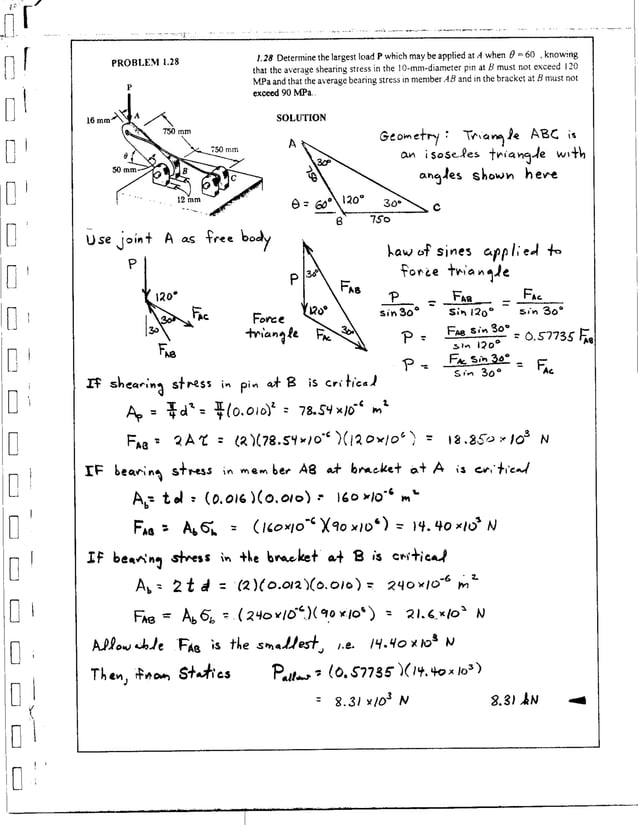 PROBLEM 1.28
1.28 Determine the largest load P which may be applied at A when θ = 60 , knowing
that the average shearing stress in the 10-mm-diameter pin at B must not exceed 120
MPa and that the average bearing stress in member AB and in the bracket at B must not
exceed 90 MPa..
P
16 mm
A
750 mm
750 mm
θ
B
C
50 mm
12 mm
SOLUTION
Geometry : Triangle ABC is
an isosceles triangle with
angles shown here
A
30°
750
θ = 60°
120°
30°
C
B
750
Use joint A as free body
P
120°
30°
30
F_AC
F_AB
P
30°
F_AB
120°
30°
F_AC
Force
triangle
Law of sines applied to
force triangle
P / sin 30° = F_AB / sin 120° = F_AC / sin 30°
P = F_AB sin 30° / sin 120° = 0.57735 F_AB
P = F_AC sin 30° / sin 30° = F_AC
If shearing stress in pin at B is critical
A_p = π/4 d² = π/4 (0.010)² = 78.54 x10⁻⁶ m²
F_AB = 2Aτ = (2)(78.54x10⁻⁶)(120x10⁶) = 18.850 x 10³ N
IF bearing stress in member AB at bracket at A is critical
A_b = td = (0.016)(0.010) = 160x10⁻⁶ m²
F_AB = A_b σ_b = (160x10⁻⁶)(90 x10⁶) = 14.40 x10³ N
If bearing stress in the bracket at B is critical
A_b = 2td = (2)(0.012)(0.010) = 240x10⁻⁶ m²
F_AB = A_b σ_b = (240x10⁻⁶)(90 x10⁶) = 21.6 x10³ N
Allowable F_AB is the smallest, i.e. 14.40 x10³ N
Then, from Statics P_allow = (0.57735)(14.40 x10³)
= 8.31 x10³ N 8.31 kN